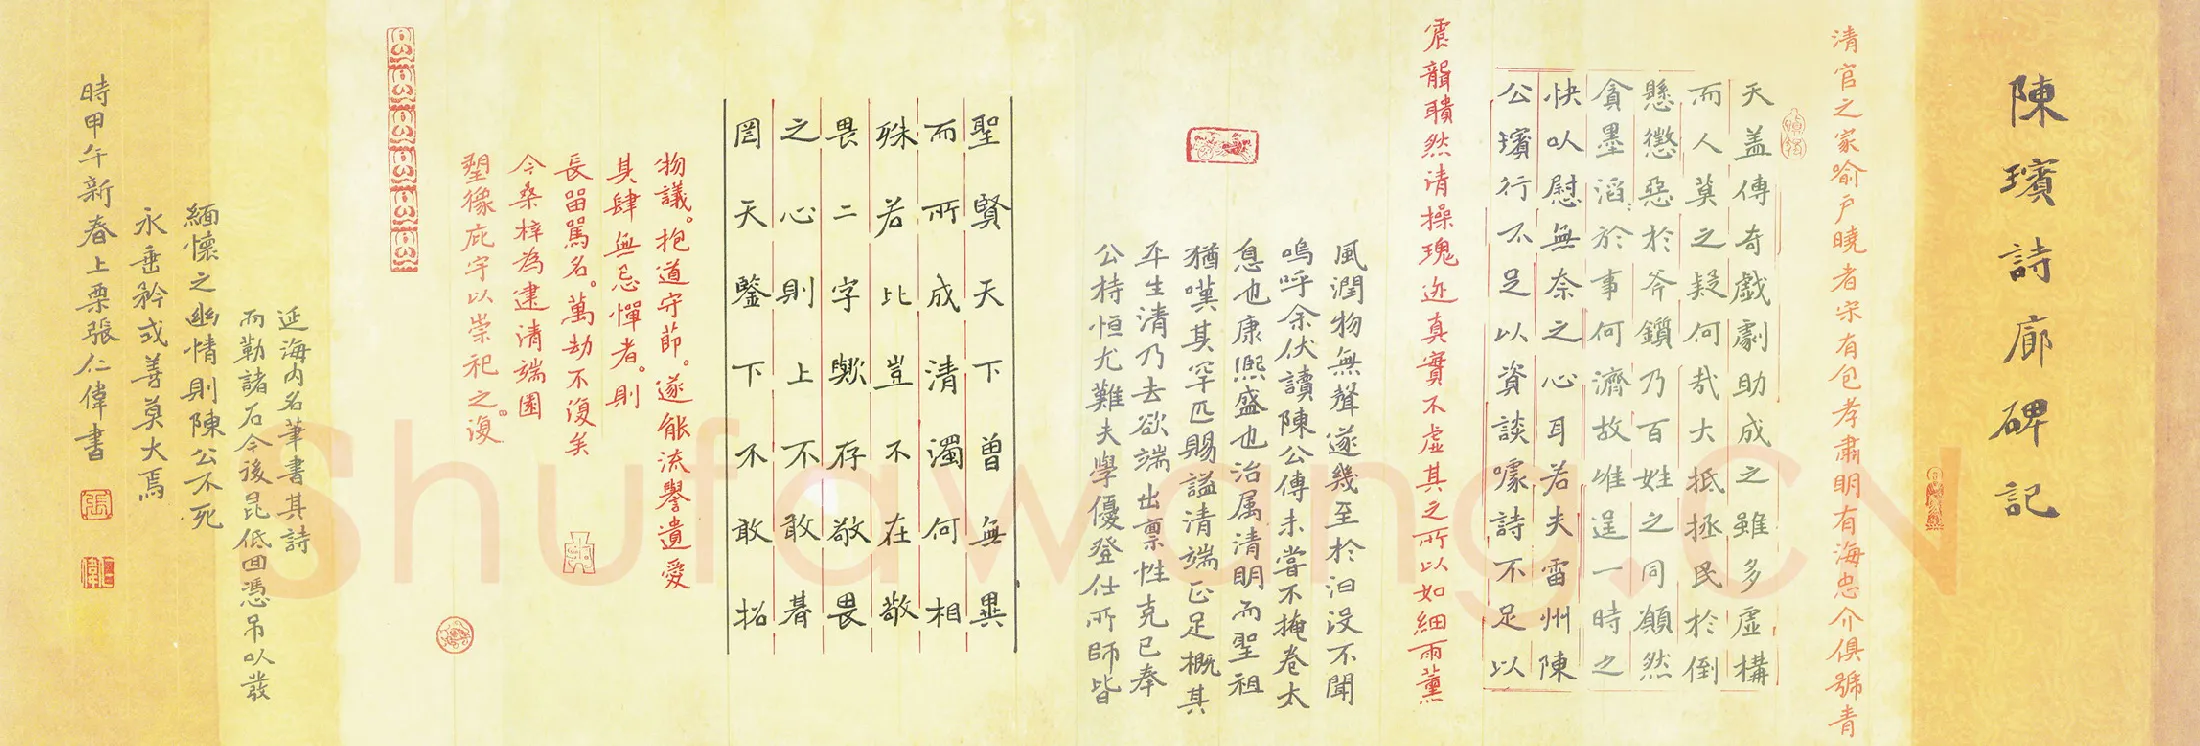 陳璸詩廊碑記
清官之家喻戶曉者宋有包孝肅明有海忠介俱號青
天盖傳奇戲劇助成之雖多虛構
而人莫之疑何哉大抵拯民於倒
懸懲惡於斧鑕乃百姓之同願然
貪墨滔於事何濟故唯逞一時之
快以慰無奈之心耳若夫雷州陳
公璸行不足以資談噱詩不足以
震聾聵然清操瑰迹真實不虛其之所以如細雨薰
風潤物無聲遂幾至於汩没不聞
嗚呼余伏讀陳公傳未嘗不掩卷太
息也康熙盛也治属清明而聖祖
猶嘆其罕匹賜謚清端正足概其
平生清乃去欲端出禀性克已奉
公持恒尤難夫學優登仕所師皆
聖賢天下曾無異
而所成清濁何相
殊若比豈不在敬
畏二字歟存敬畏
之心則上不敢朞
罔天鑒下不敢招
物議。抱道守節。遂能流譽遺愛
其肆無忌憚者。則
長留駡名。萬劫不復矣
今桑梓為建清端園
塑像庇宇以崇祀之。復
延海内名筆書其詩
而勒諸石今後昆低回憑吊以發
緬懷之幽情則陳公不死
永垂矜式善莫大焉
時甲午新春上栗張仁偉書
Shufawang.CN